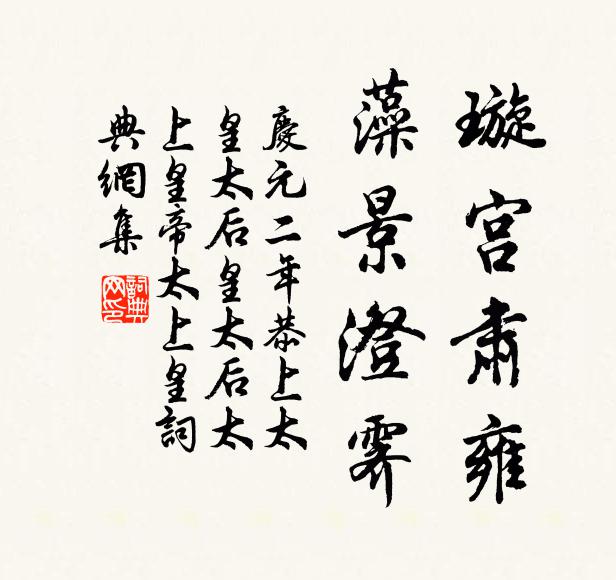 璇宮肅雍
藻景澄霽
慶元二年恭上太
皇太后皇太后太
上皇帝太上皇詞
典網集
詞典
网印